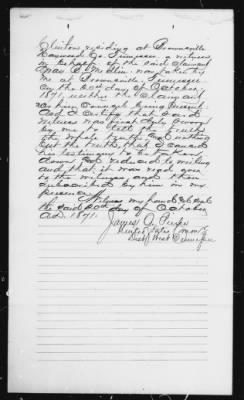 Clinton residing at Brownsville
Tennessee witness
in behalf of the said claimant
now taken by
me at Brownsville, Tennessee
on the 20th day of October
1871, neither the claimant
or his Counsel being present
And I certify that said
witness was first duly sworn
by me to tell the truth
the whole truth and nothing
but the truth, that I caused
his testimony to be taken
down and reduced to writing
and that it was read over
to the witness and then
subscribed by him in my
presence.
Witness my hand & Seal
the said 20th day of October
A.D. 1871.
James A.
United States Comm'r
Dist. West Tennessee